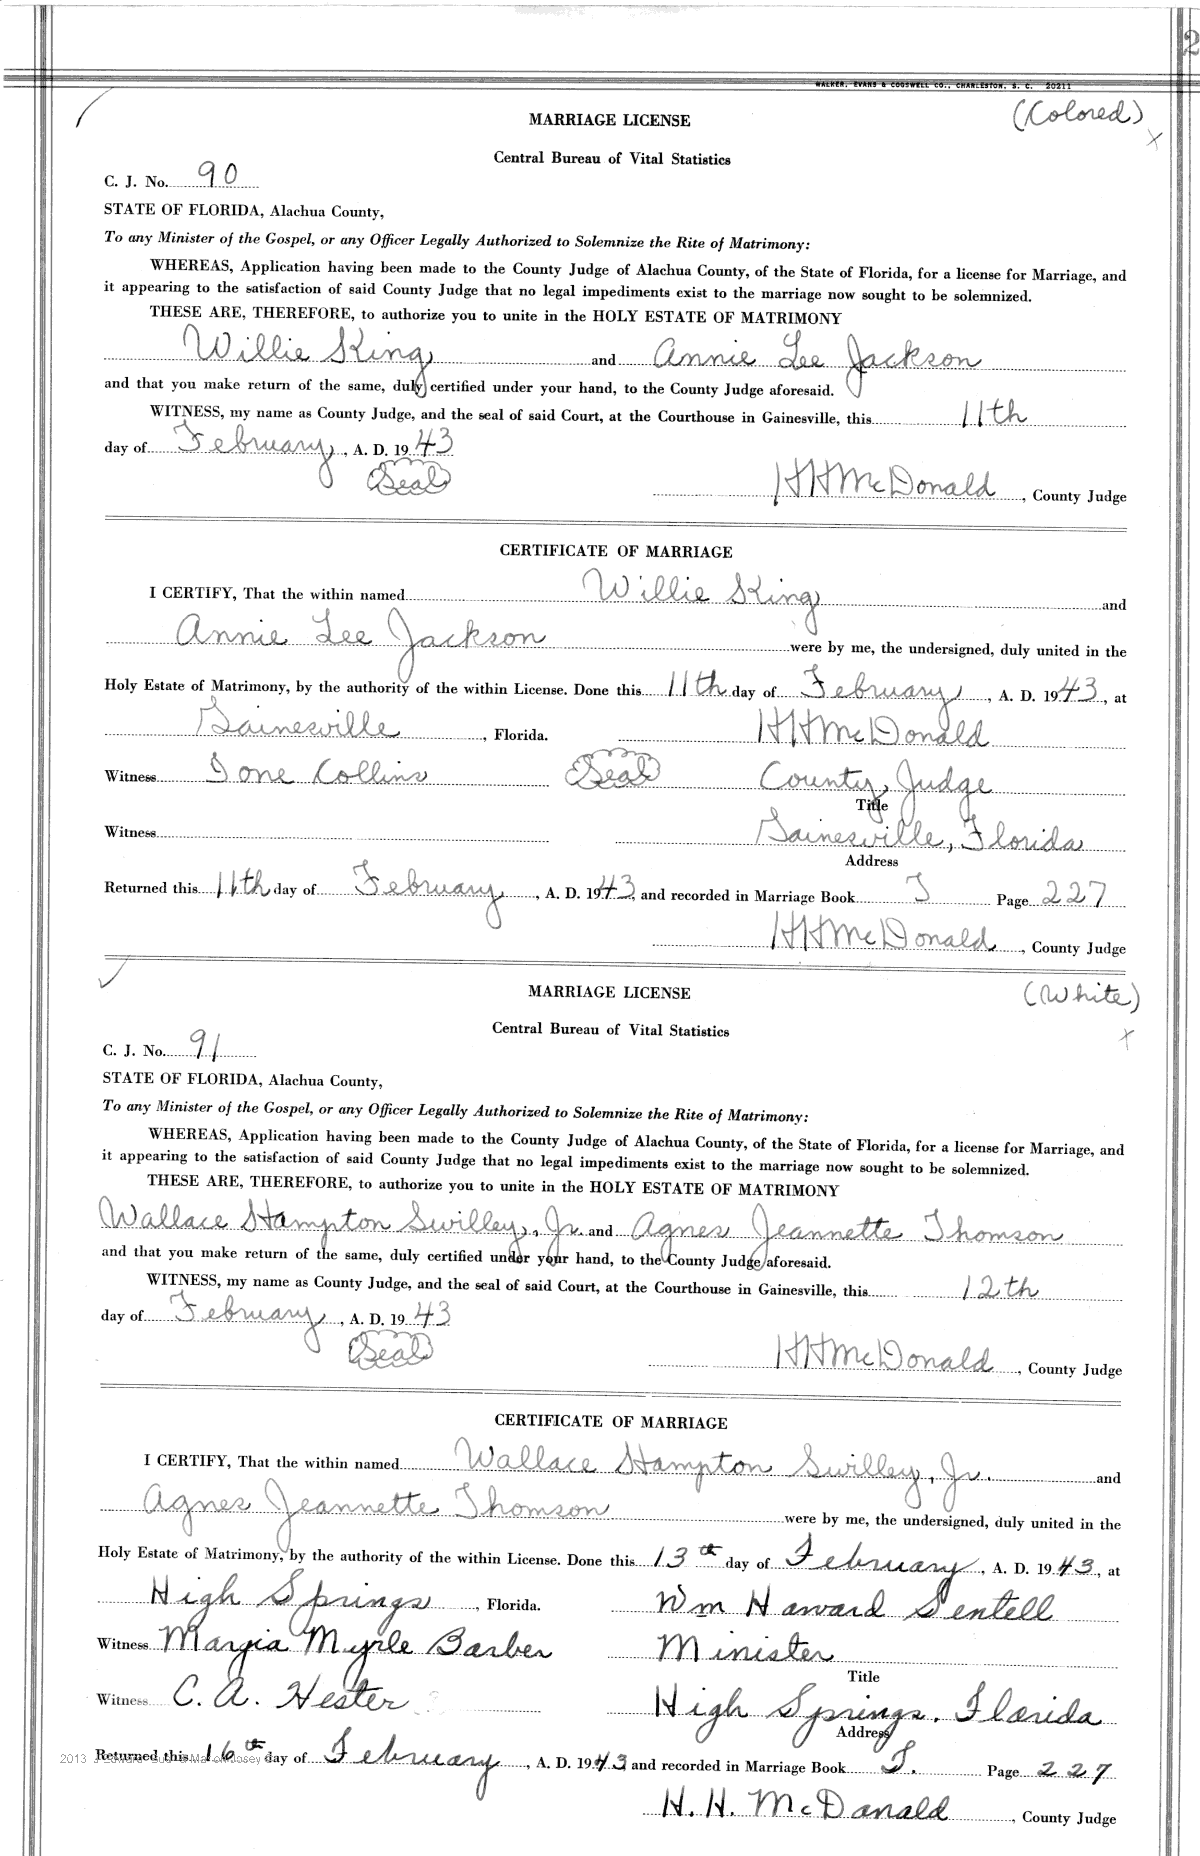 WALKER, EVANS & COGSWELL CO., CHARLESTON, S. C. 20211
MARRIAGE LICENSE (Colored)
Central Bureau of Vital Statistics
C. J. No. 90
STATE OF FLORIDA, Alachua County,
To any Minister of the Gospel, or any Officer Legally Authorized to Solemnize the Rite of Matrimony:
WHEREAS, Application having been made to the County Judge of Alachua County, of the State of Florida, for a license for Marriage, and
it appearing to the satisfaction of said County Judge that no legal impediments exist to the marriage now sought to be solemnized.
THESE ARE, THEREFORE, to authorize you to unite in the HOLY ESTATE OF MATRIMONY
Willie King and Annie Lee Jackson
and that you make return of the same, duly certified under your hand, to the County Judge aforesaid.
WITNESS, my name as County Judge, and the seal of said Court, at the Courthouse in Gainesville, this 11th
day of February, A. D. 1943
(Seal) HH McDonald, County Judge
CERTIFICATE OF MARRIAGE
I CERTIFY, That the within named Willie King and
Annie Lee Jackson were by me, the undersigned, duly united in the
Holy Estate of Matrimony, by the authority of the within License. Done this 11th day of February, A. D. 1943, at
Gainesville, Florida. HH McDonald
Witness Ione Collins (Seal) County Judge
Title
Witness Gainesville, Florida
Address
Returned this 11th day of February, A. D. 1943, and recorded in Marriage Book T Page 227
HH McDonald, County Judge
MARRIAGE LICENSE (White)
Central Bureau of Vital Statistics
C. J. No. 91
STATE OF FLORIDA, Alachua County,
To any Minister of the Gospel, or any Officer Legally Authorized to Solemnize the Rite of Matrimony:
WHEREAS, Application having been made to the County Judge of Alachua County, of the State of Florida, for a license for Marriage, and
it appearing to the satisfaction of said County Judge that no legal impediments exist to the marriage now sought to be solemnized.
THESE ARE, THEREFORE, to authorize you to unite in the HOLY ESTATE OF MATRIMONY
Wallace Hampton Swilley, Jr. and Agnes Jeannette Thomson
and that you make return of the same, duly certified under your hand, to the County Judge aforesaid.
WITNESS, my name as County Judge, and the seal of said Court, at the Courthouse in Gainesville, this 12th
day of February, A. D. 1943
(Seal) HH McDonald, County Judge
CERTIFICATE OF MARRIAGE
I CERTIFY, That the within named Wallace Hampton Swilley, Jr. and
Agnes Jeannette Thomson were by me, the undersigned, duly united in the
Holy Estate of Matrimony, by the authority of the within License. Done this 13th day of February, A. D. 1943, at
High Springs, Florida. Wm Howard Sentell
Witness Margia Myrle Barber Minister
Title
Witness C. A. Hester High Springs, Florida
Address
Returned this 16th day of February, A. D. 1943 and recorded in Marriage Book T. Page 227
H. H. McDonald, County Judge